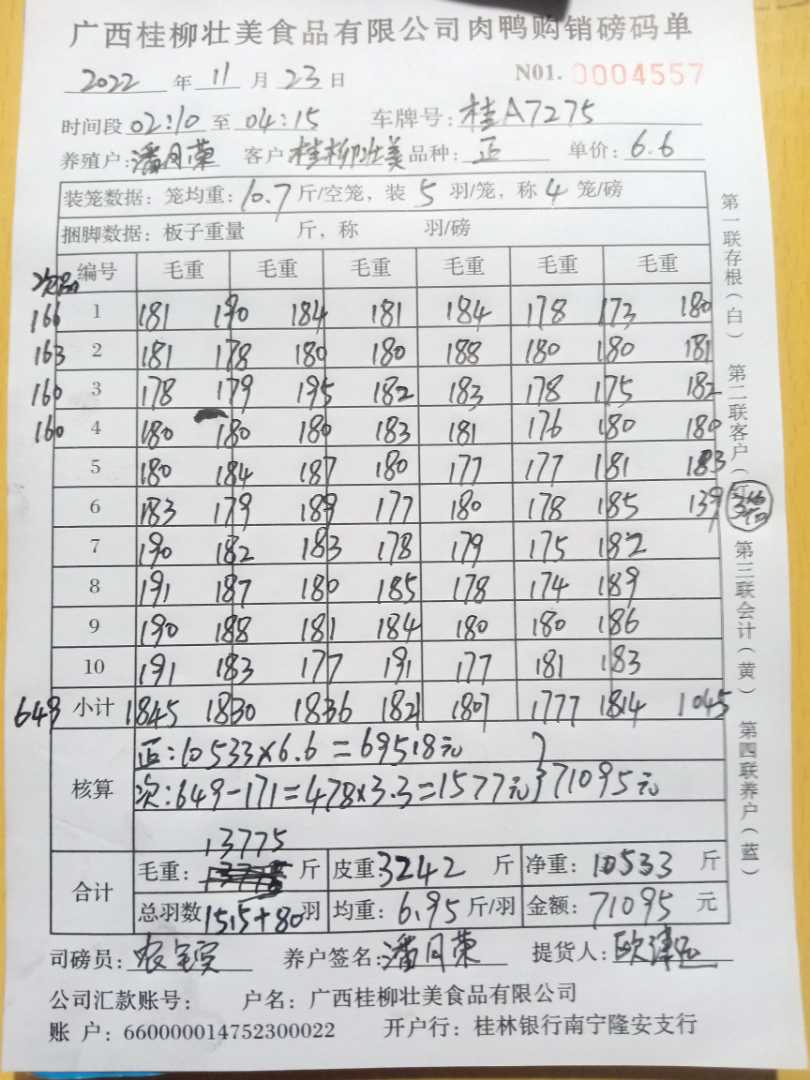 广西桂柳壮美食品有限公司肉鸭购销磅码单
2022 年 11 月 23 日 N01. 0004557
时间段 02:10 至 04:15 车牌号: 桂A7275
养殖户: 潘月荣 客户 桂柳壮美 品种: 正 单价: 6.6
装笼数据: 笼均重: 10.7 斤/空笼, 装 5 羽/笼, 称 4 笼/磅
捆脚数据: 板子重量 斤, 称 羽/磅
次品 编号 毛重 毛重 毛重 毛重 毛重 毛重
166 1 181 190 184 181 184 178 173 180
163 2 181 178 180 180 188 180 180 181
160 3 178 179 195 182 183 178 175 182
160 4 180 180 180 183 181 176 180 180
5 180 184 187 180 177 177 181 183
6 183 179 189 177 180 178 185 139
7 190 182 183 178 179 175 182
8 191 187 180 185 178 174 189
9 190 188 181 184 180 180 186
10 191 183 177 191 177 181 183
649 小计 1845 1830 1836 1821 1807 1777 1814 1045
核算
正: 10533×6.6=69518元
次: 649-171=478×3.3=1577元 } 71095元
13775
合计
毛重: 斤 皮重 3242 斤 净重: 10533 斤
总羽数 1515+80 羽 均重: 6.95 斤/羽 金额: 71095 元
司磅员: 养户签名: 潘月荣 提货人:
公司汇款账号: 户名: 广西桂柳壮美食品有限公司
账 户: 660000014752300022 开户行: 桂林银行南宁隆安支行
第一联存根(白) 第二联客户(红) 第三联会计(黄) 第四联养户(蓝)